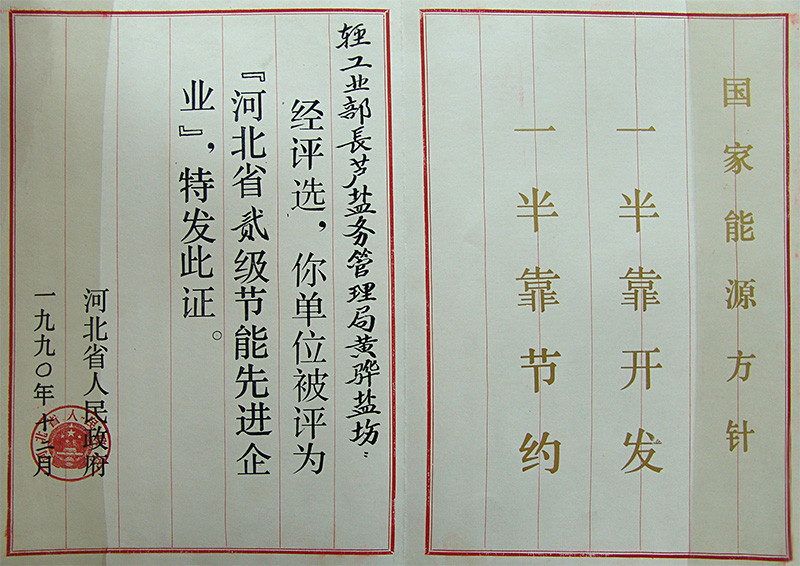 国家能源方针
一半靠开发
一半靠节约
轻工业部長芦盐务管理局黄骅盐场：
经评选，你单位被评为
『河北省贰级节能先进企
业』，特发此证。
河北省人民政府
一九九〇年十二月